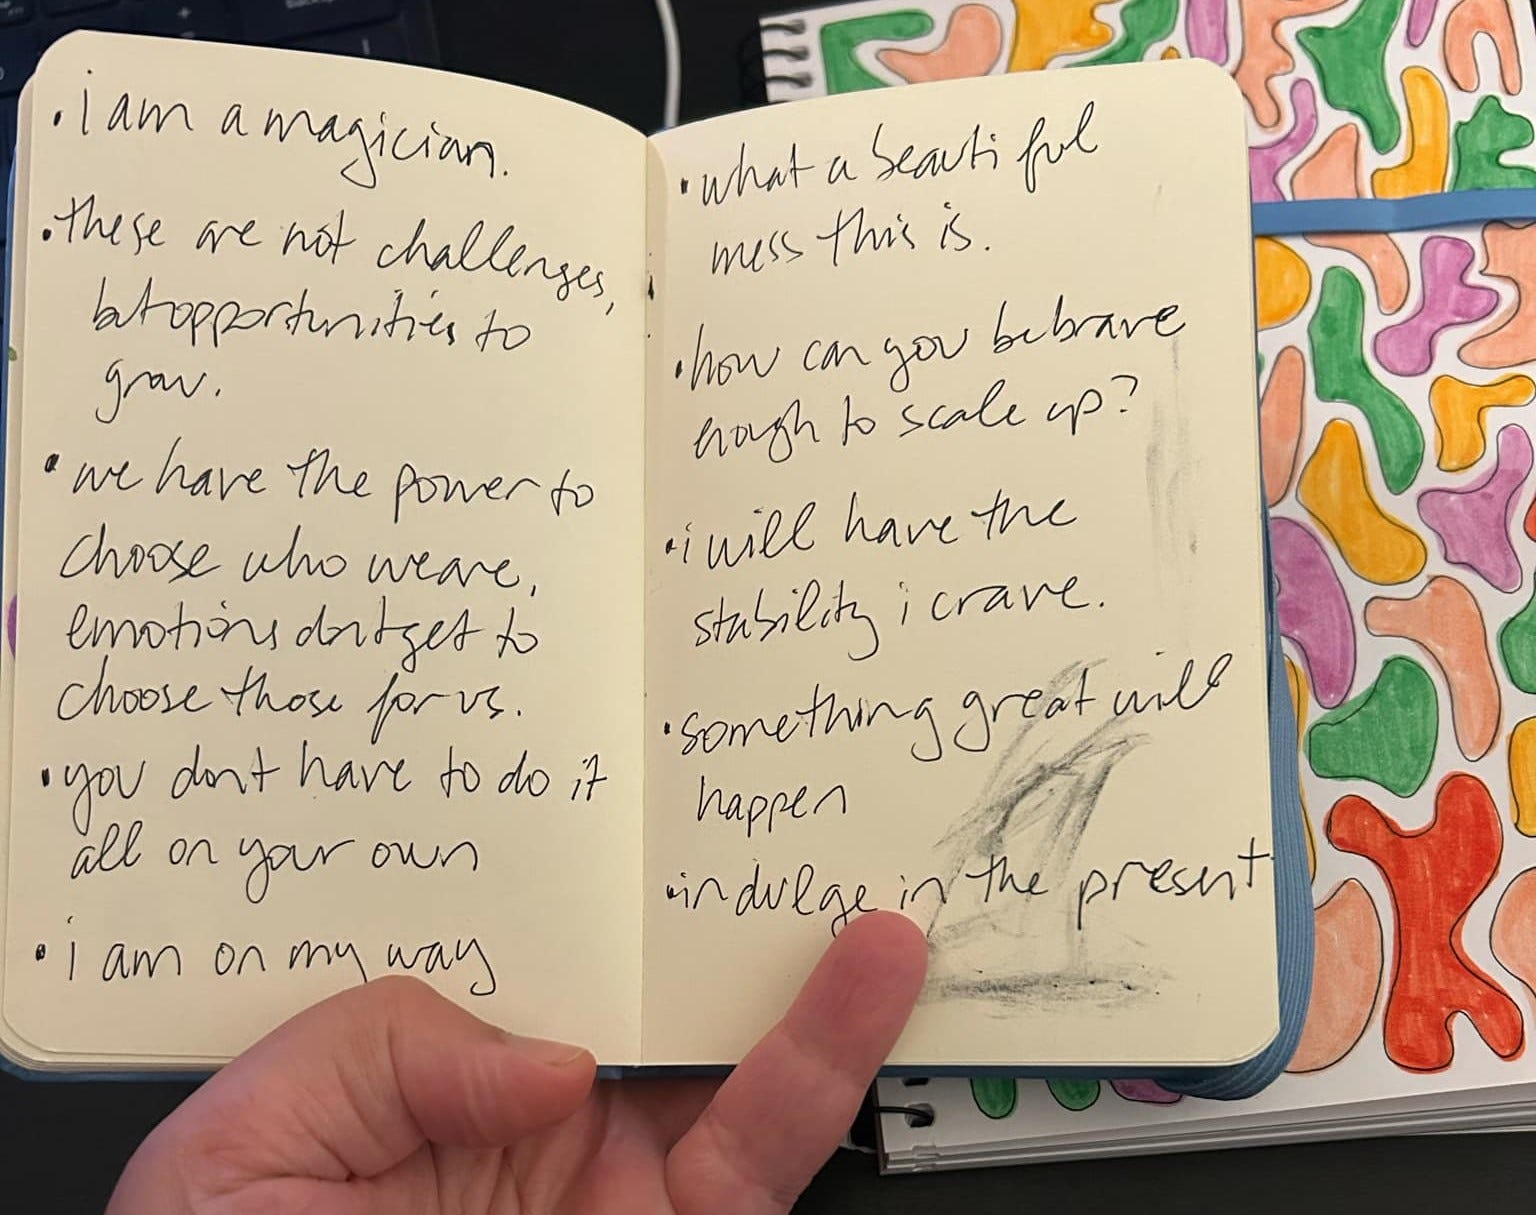 • i am a magician.
• these are not challenges,
but opportunities to
grow.
• we have the power to
choose who we are,
emotions dont get to
choose those for us.
• you dont have to do it
all on your own
• i am on my way
• what a beautiful
mess this is.
• how can you be brave
enough to scale up?
• i will have the
stability i crave.
• something great will
happen
• indulge in the present